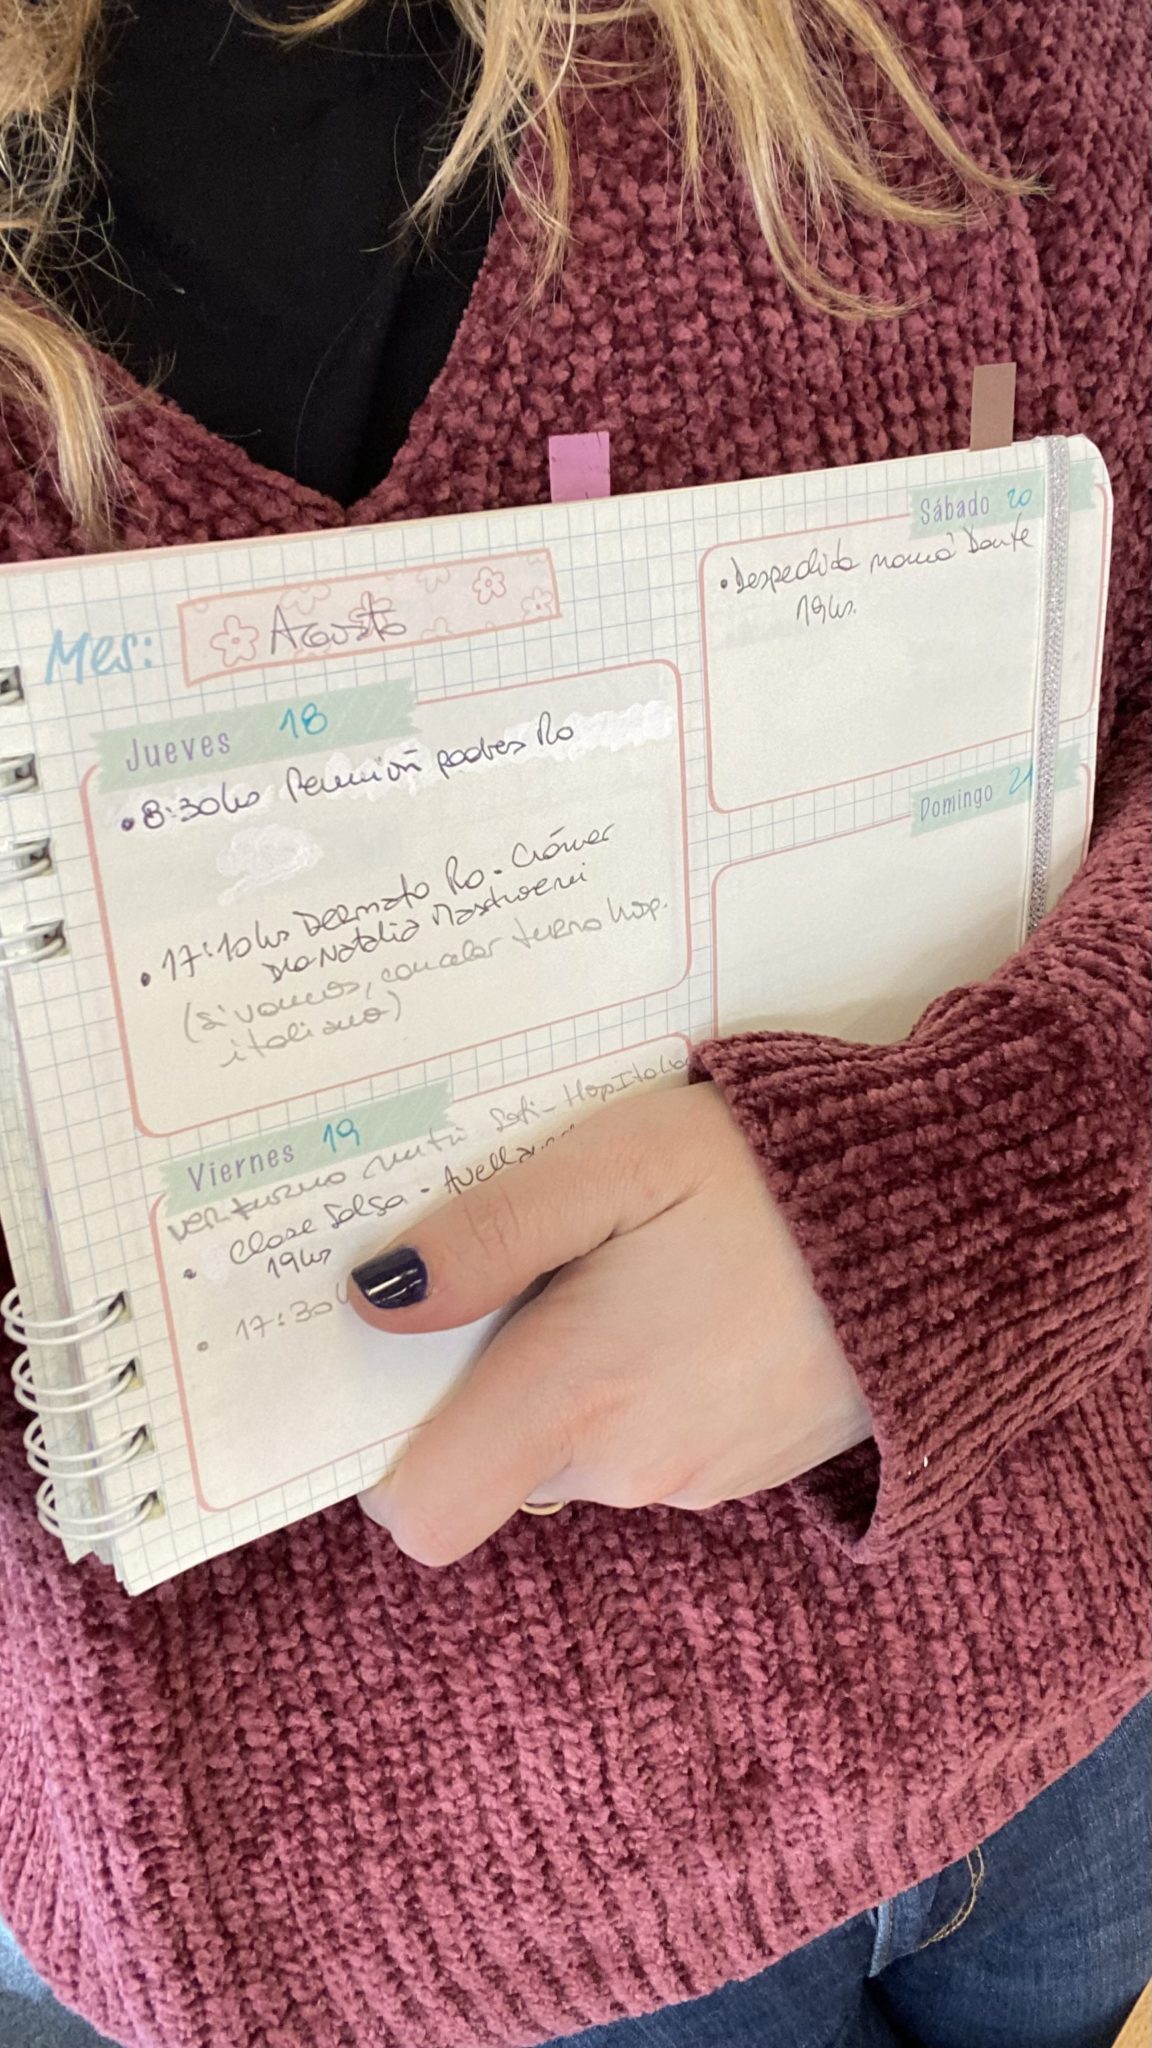 Mes: Agosto
Jueves 18
• 8:30hs Reunión padres Ro
• 17:10hs Dermato Ro. Crámer
Dra Natalia Mastroeni
(si vamos, cancelar turno hosp.
italiano)
Viernes 19
ver turno nutri Sofi - Hosp Italia
• Clase Salsa - Avella
19hs
• 17:30
Sábado 20
• Despedida mamá Dante
19hs.
Domingo 21